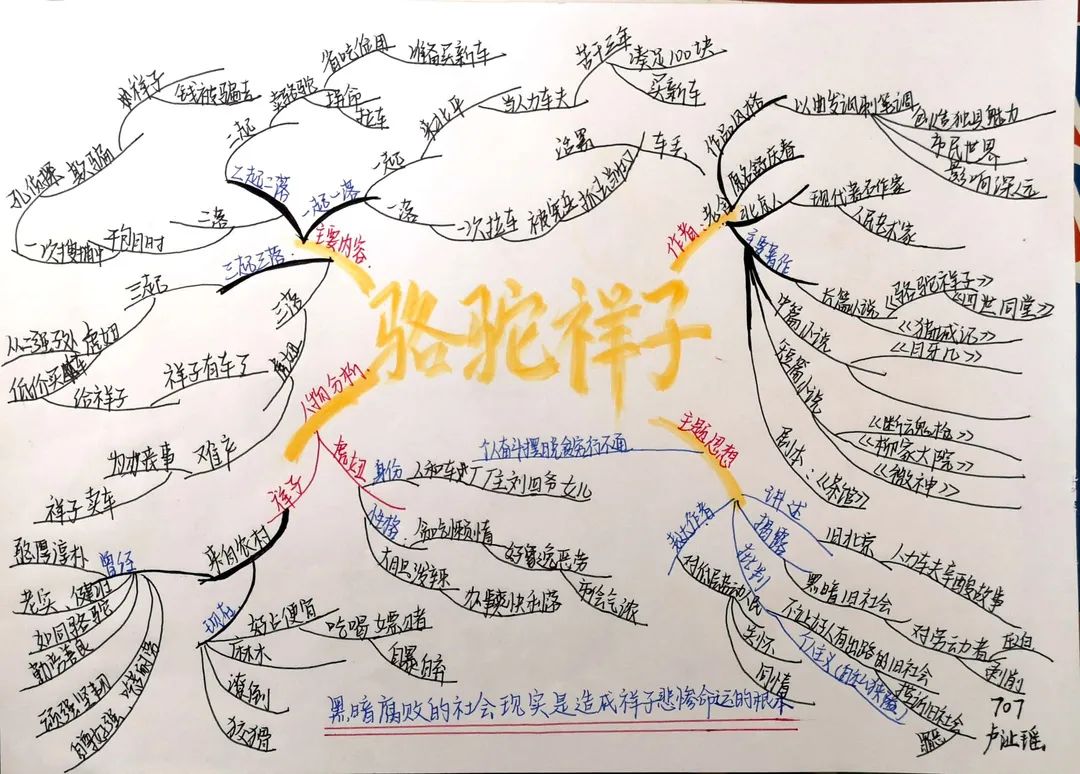 骆驼祥子
主要内容
一起一落
一起
来北平
当人力车夫
苦干三年
凑足100块
买新车
一落
一次拉车
被宪兵抓去当壮丁
车丢
二起二落
二起
卖骆驼
省吃俭用
准备买新车
拼命
拉车
二落
一次搜捕中
孔侦探
欺骗
祥子
钱被骗去
三起三落
三起
虎妞
从二强子处
低价买车
给祥子
祥子有车了
三落
虎妞
难产
为办丧事
祥子卖车
作者:老舍
作品风格
创造独具魅力
市民世界
影响深远
原名舒庆春
北京人
现代著名作家
人民艺术家
主要著作
长篇小说
《骆驼祥子》
《四世同堂》
《猫城记》
中篇小说
《月牙儿》
短篇小说
《断魂枪》
《柳家大院》
《微神》
剧本:《茶馆》
人物分析
祥子
来自农村
曾经
憨厚淳朴
老实、健壮
如同骆驼
勤劳善良
顽强坚韧
自尊好强、吃苦耐劳
现在
好占便宜
吃喝嫖赌
自暴自弃
麻木
潦倒
狡猾
虎妞
身份
人和车厂厂主刘四爷女儿
性格
好吃懒惰
好逸恶劳
大胆泼辣
办事爽快利落
主题思想
个人奋斗摆脱贫穷行不通
讲述
旧北京
人力车夫辛酸故事
揭露
黑暗旧社会
对劳动者
压迫
剥削
批判
不让好人有出路的旧社会
表达作者
对底层劳动人民
关怀
同情
黑暗腐败的社会现实是造成祥子悲惨命运的根本
707